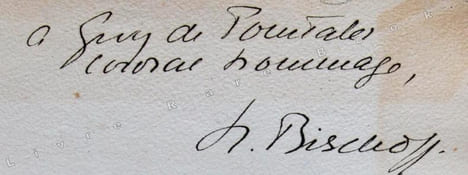 a Guy de Pourtalès
cordial hommage,
H. Bischoff.
Livre Rare Book